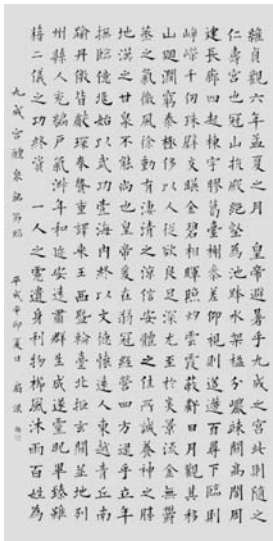 維貞觀六年孟夏之月 皇帝避暑乎九成之宮此則隨之
仁壽宮也冠山抗殿絕壑為池跨水架楹分巖竦闕高閣周
建長廊四起棟宇膠葛臺榭參差仰視則迢遰百尋下臨則
崢嶸千仞珠璧交暎金碧相暉照灼雲霞蔽虧日月觀其移
山迴澗窮泰極侈以人從欲良足深尤至於炎景流金無鬱
蒸之氣微風徐動有淒清之涼信安體之佳所誠養神之勝
地漢之甘泉不能尚也皇帝爰在弱冠經營四方逮乎立年
撫臨億兆始以武功壹海內終以文德懷遠人東越青丘南
踰丹徼皆獻琛奉贄重譯來王西暨輪臺北拒玄闕並地列
州縣人充編戶氣淑年和邇安遠肅群生咸遂靈貺畢臻雖
藉二儀之功終資 一人之慮遺身利物櫛風沐雨百姓為
九成宮醴泉銘節臨 平成辛卯夏日